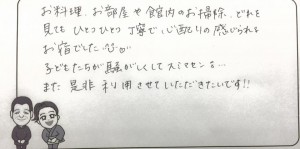 お料理、お部屋や館内のお掃除、どれを
見ても ひとつひとつ 丁寧で 心配りの 感じられる
お宿でした。
子どもたちが 騒がしくして スミマセンる…
また 是非 利用させていただきたいです!!